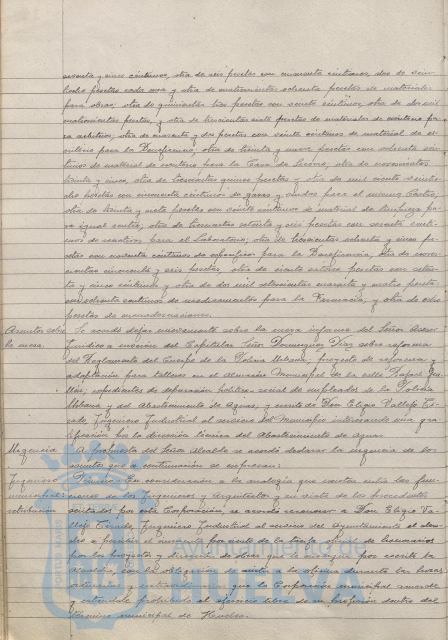 sesenta y cinco céntimos, otra de seis pesetas con cincuenta céntimos, dos de
pesetas cada una y otra de cuatrocientas ochenta pesetas de materiales
para obras; otra de quinientas tres pesetas con setenta céntimos, otra de dos mil
cuatrocientas pesetas, y otra de trescientas siete pesetas de materiales de escritorio pa
ra arbitrios, otra de cuarenta y dos pesetas con veinte céntimos de material de es
critorio para la Beneficencia, otra de treinta y nueve pesetas con ochenta cén
timos de material de escritorio para la Casa de Socorro, otra de novecientas
treinta y cinco, otra de trescientas quince pesetas y otra de mil ciento
pesetas con cincuenta céntimos de gasas y vendas para el mismo Centro,
otra de treinta y siete pesetas con veinte céntimos de material de limpieza pa
ra igual centro, otra de trescientas setenta y seis pesetas con sesenta cénti
mos de reactivos para el Laboratorio; otra de trescientas ochenta y cinco pe
setas con cuarenta céntimos de específicos para la Beneficencia, otra de nove
cientas cincuenta y seis pesetas, otra de ciento catorce pesetas con seten
ta y cinco céntimos y otra de dos mil setecientas cincuenta y cuatro pesetas
con ochenta céntimos de medicamentos para la Farmacia, y otra de ocho
pesetas de encuadernaciones.
Asuntos sobre Se acordó dejar nuevamente sobre la mesa informe del Señor Asesor
la mesa. Jurídico a moción del Capitular Señor Domínguez Díaz sobre reforma
del Reglamento del Cuerpo de la Policía Urbana, proyecto de reforma y
adaptación para talleres en el Almacén Municipal de la calle Rafael Gui
llén, expedientes de depuración político-social de empleados de la Policía
Urbana y del Abastecimiento de Aguas, y escrito de Don Eligio Vallejo Ti
rado, Ingeniero Industrial al servicio del Municipio interesando una gra
tificación por la dirección técnica del Abastecimiento de Aguas.
Urgencia A propuesta del Señor Alcalde se acordó declarar la urgencia de los
asuntos que a continuación se expresan:
Ingeniero Primero. En consideración a la analogía que existe entre las fun
municipal: ciones de los Ingenieros y Arquitectos y en vista de los precedentes
retribución sentados por esta Corporación, se acordó reconocer a Don Eligio Va
llejo Tirado, Ingeniero Industrial al servicio del Ayuntamiento el dere
cho a percibir el cincuenta por ciento de la tarifa oficial de honorarios
por los proyectos y dirección de obras que le encargue por escrito la
Alcaldía, con la obligación de asistir a la oficina durante las horas
que la Corporación municipal acuerde
y entendiendo prohibido el ejercicio libre de su profesión dentro del
término municipal de Huelva.
Ayuntamiento de
HUELVA
PORTUS MARIS